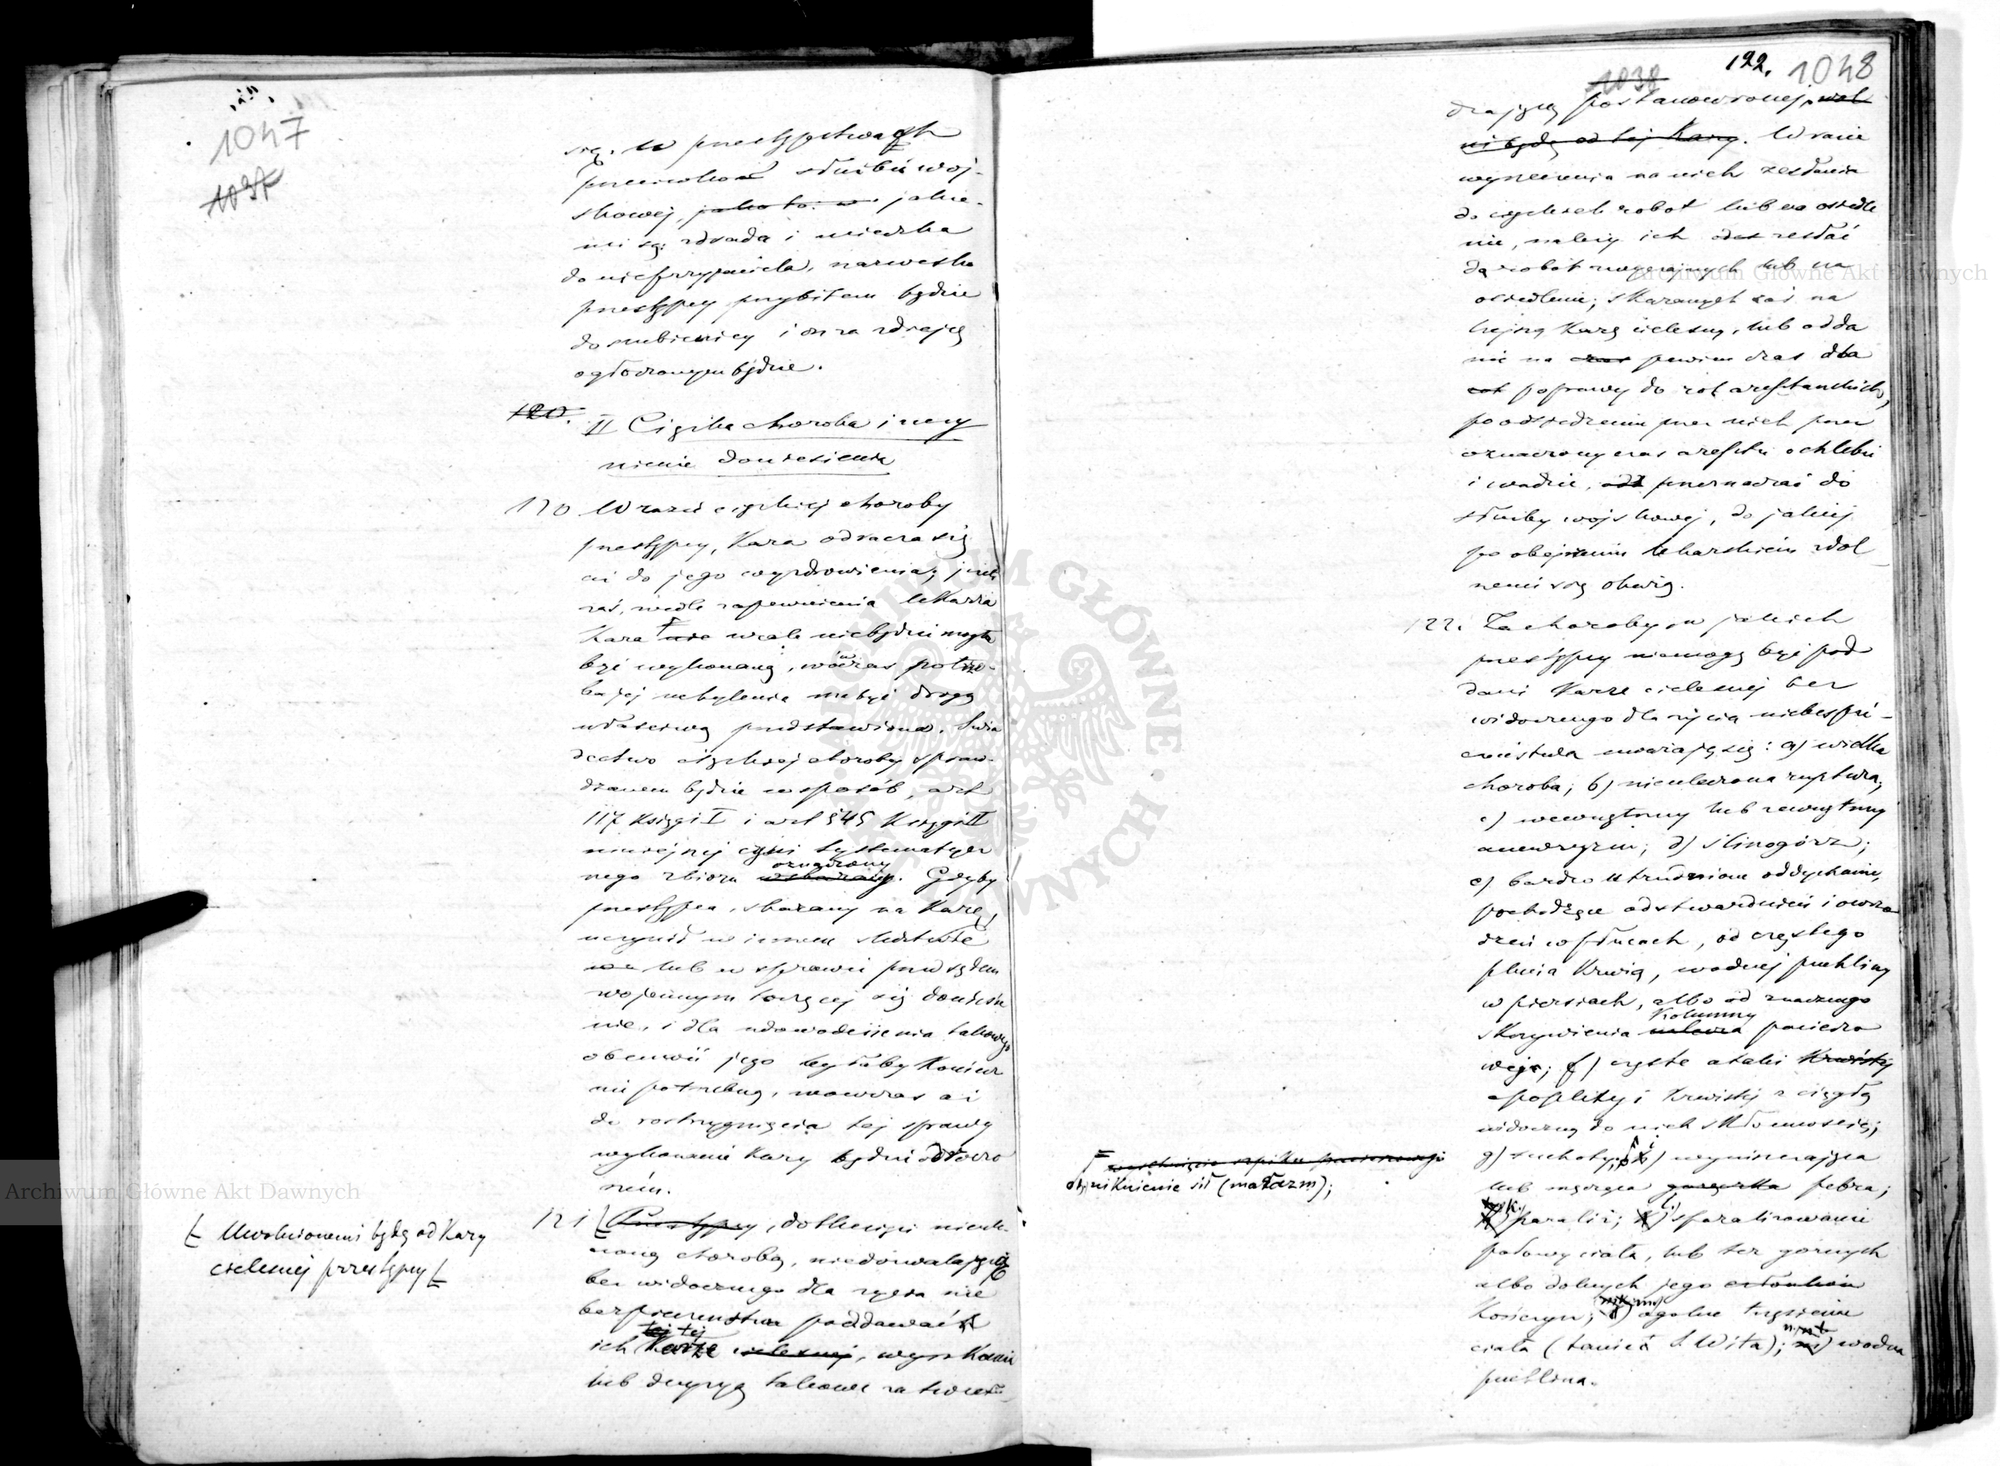 1047
1037
się. W przestępstwach
przeciwko służbie woj-
skowej, jako to: w jakie-
mi są: zdrada i ucieczka
do nieprzyjaciela, nazwisko
przestępcy przybitem będzie
do szubienicy i on za zdrajcę
ogłoszonym będzie.
120.
II Ciężka choroba i uczy
nienie doniesienia
120 W razie ciężkiej choroby
przestępcy, Kara odracza się
aż do jego wyzdrowienia; jeżeli
zaś, wedle zapewnienia lekarza
Kara wcale niebędzie mogła
być wykonaną, wówczas potrze-
ba jej uchylenia ma być drogą
właściwą przedstawiona. Świa
dectwo ciężkiej choroby spraw-
dzanem będzie w sposób, art
117 Księgi I i art 545 Księgi II
niniejszej części systematycz
nego zbioru wskazany oznaczony. Gdyby
przestępca, skazany na Karę,
uczynił w innem śledztwie
lub w sprawie przed sądem
wojennym toczącej się doniesie
nie, i dla udowodnienia takowego
obecność jego byłaby Koniecz
nie potrzebną, wówczas aż
do rozstrzygnięcia tej sprawy
wykonanie Kary będzie odroczo
nem.
121 [Przestępcy, dotknięci nieule
czoną chorobą, niedozwalającą
bez widocznego dla życia nie
bezpieczeństwa poddawać
ich Karze tej cielesnej, wyrokami
lub decyzyą takowe zatwier
[ Uwolnionemi będą od Kary
cielesnej przestępcy [
1038
122. 1048
dzającą postanowionej, wol
ni będą od tej Kary. W razie
wyrzeczenia na nich zesłania
do ciężkich robot lub na osiedle
nie, należy ich zesłać
do robot lub na
osiedlenie; skazanych zaś na
lżejszą Karę cielesną, lub odda
nie na czas pewien czas dla
poprawy do rot aresztanckich,
po odsiedzeniu przez nich przez
oznaczony czas aresztu o chlebie
i wodzie, przeznaczać do
służby wojskowej, do jakiej
po obejrzeniu lekarskiem zdol
nemi się okażą.
122. Za choroby w jakich
przestępcy niemogą być pod
dani Karze cielesnej bez
widocznego dla życia niebezpie-
czeństwa uważają się: a) wielka
choroba; b) nieuleczona ruptura;
c) wewnętrzny lub zewnętrzny
anewryzm; d) ślinogórz;
e) bardzo utrudnione oddychanie,
pochodzące od stwardnień i owrzo
dzeń w płucach, od częstego
plucia Krwią, wodnej puchliny
w piersiach, albo od znacznego
skrzywienia Kolumny pacierzo
wej; f) częste ataki Krwistej
apoplexyi Krwistej z ciągłą
widoczną do nich skłonnością;
g) suchoty; h) wyniszczająca
lub męcząca gorączka febra;
k) paraliż; l) sparaliżowanie
połowy ciała, lub też górnych
albo dolnych jego członków
Kończyn; m) ogólne trzęsienie
ciała (taniec S. Wita); n) wodna
puchlina.
zniknienie sił (marazm);
Archiwum Główne Akt Dawnych
Archiwum Główne Akt Dawnych
ARCHIWUM GŁÓWNE AKT DAWNYCH